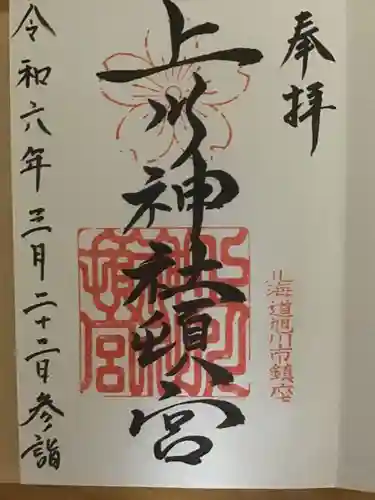 奉拝
北海道旭川市鎮座
上川神社頓宮
上川神社頓宮
令和六年三月二十二日参詣